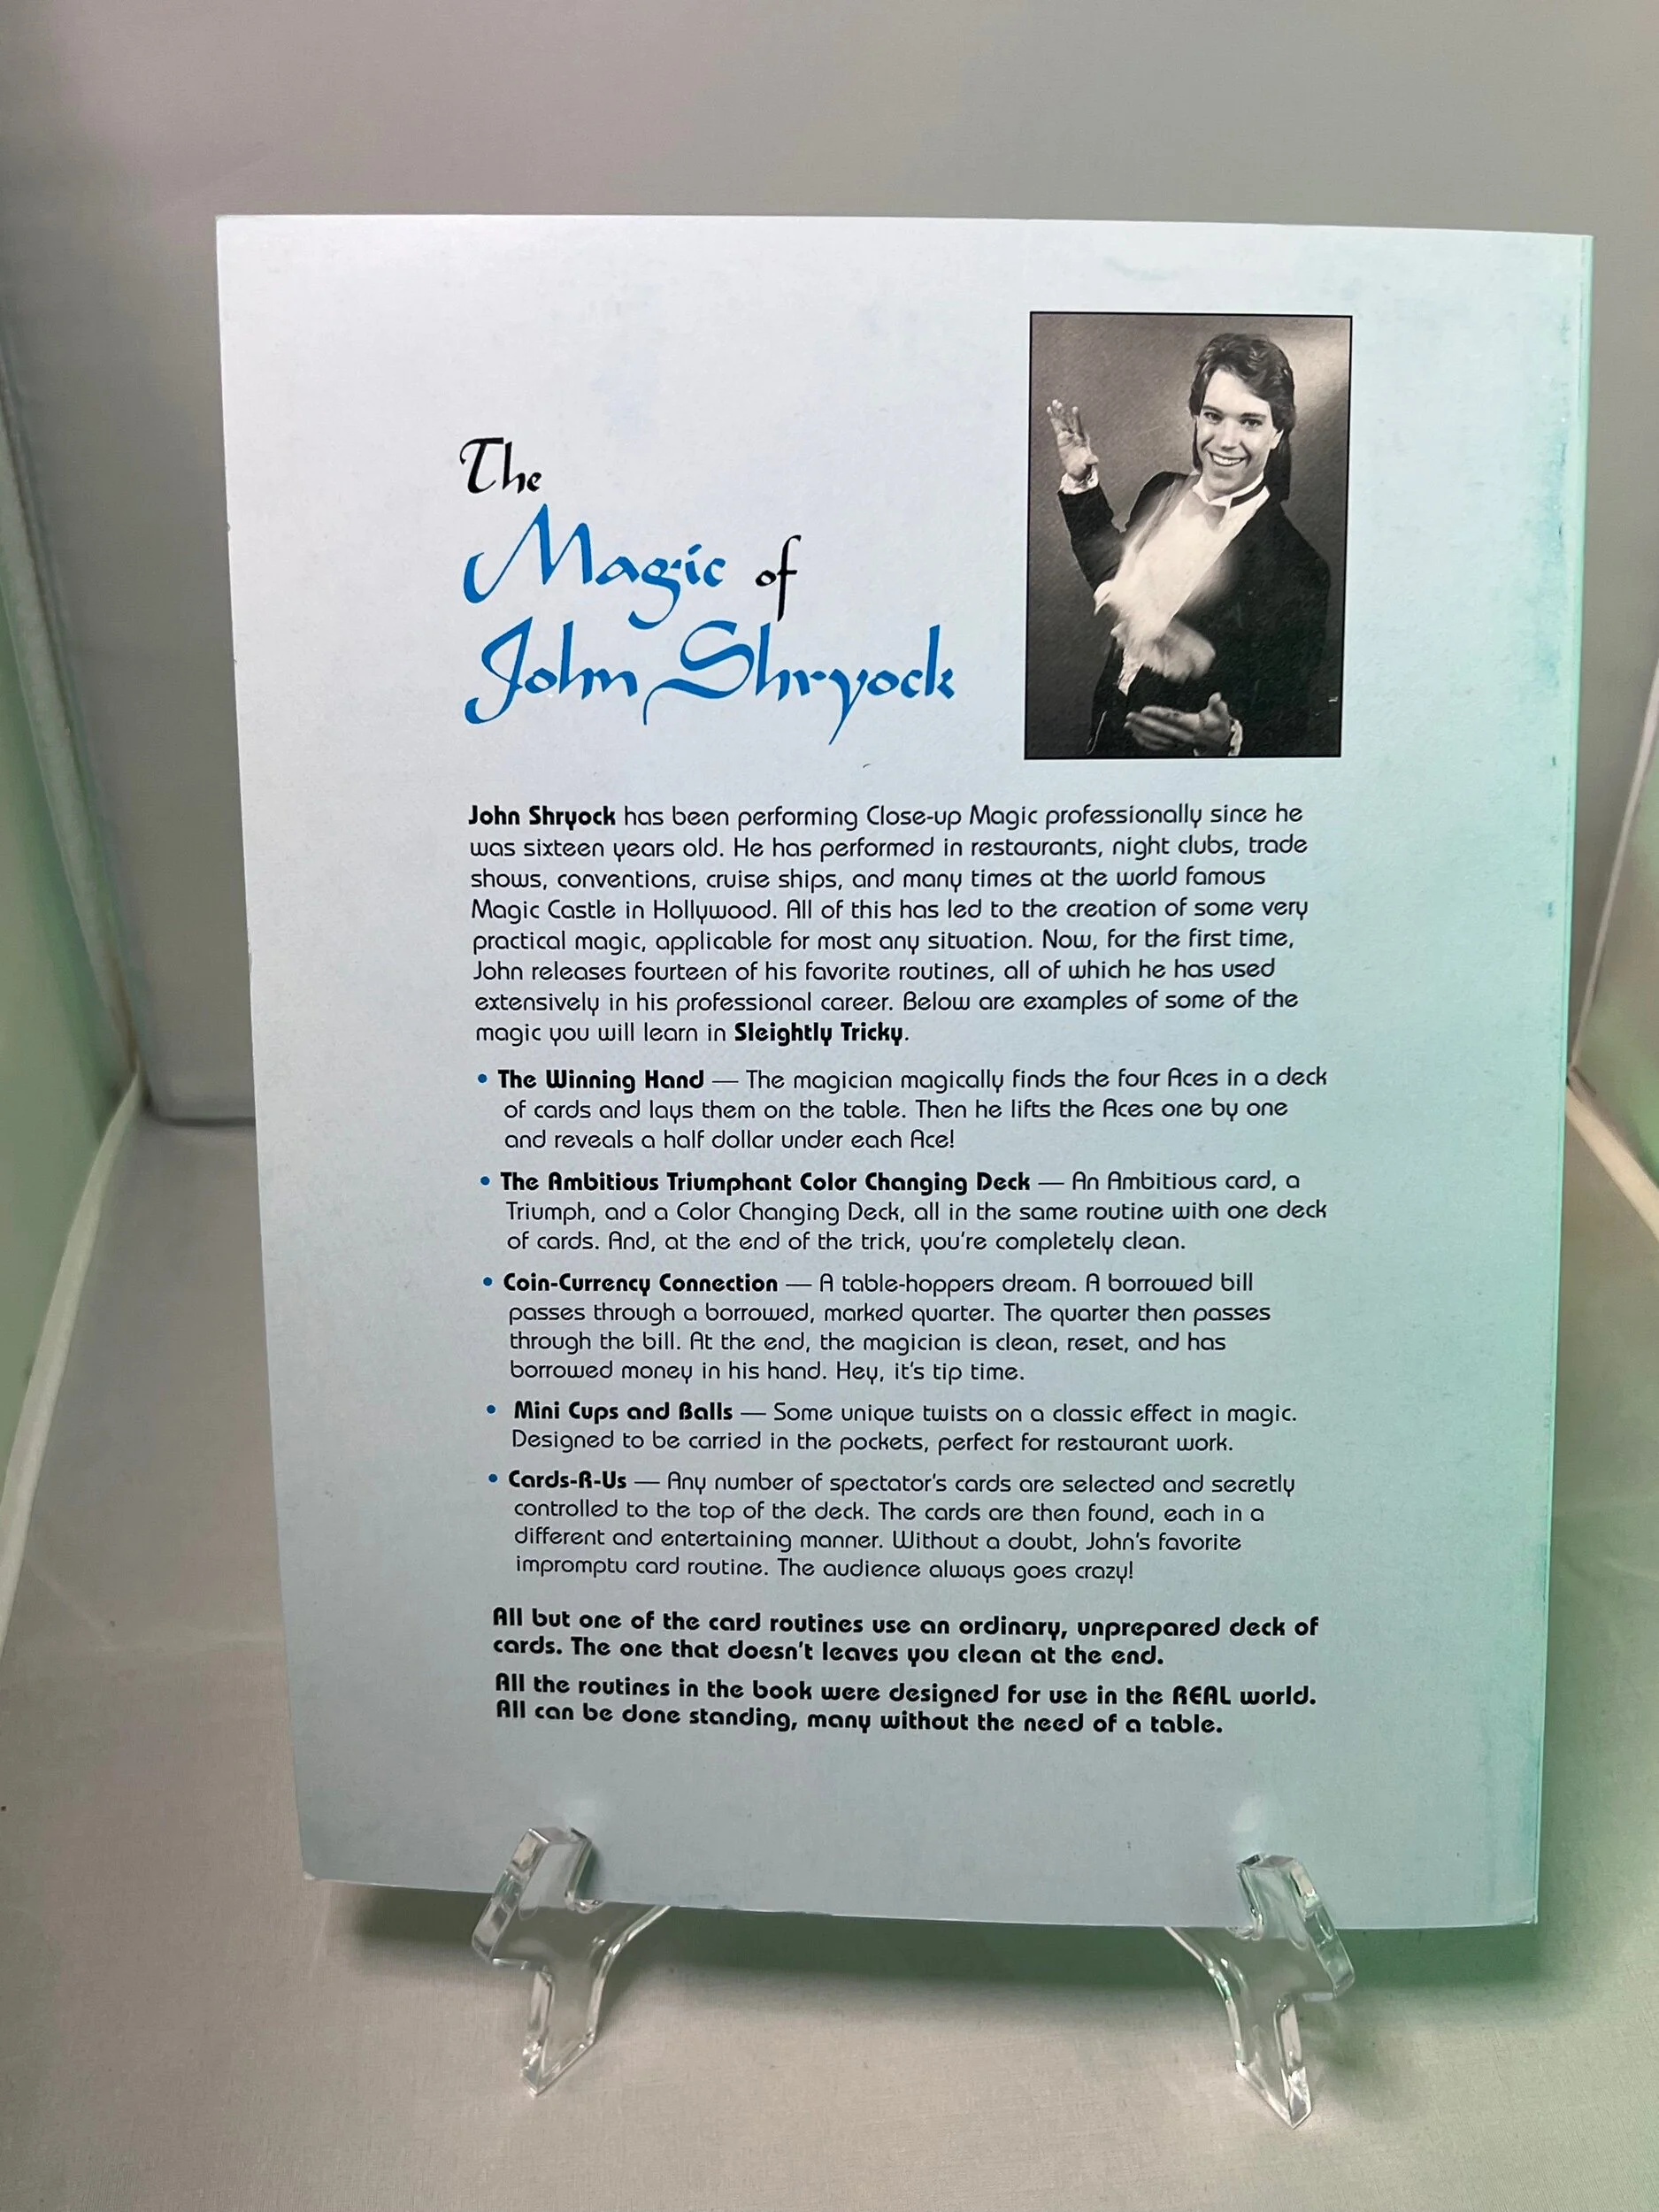 The
Magic of
John Shryock
John Shryock has been performing Close-up Magic professionally since he
was sixteen years old. He has performed in restaurants, night clubs, trade
shows, conventions, cruise ships, and many times at the world famous
Magic Castle in Hollywood. All of this has led to the creation of some very
practical magic, applicable for most any situation. Now, for the first time,
John releases fourteen of his favorite routines, all of which he has used
extensively in his professional career. Below are examples of some of the
magic you will learn in Sleightly Tricky.
• The Winning Hand — The magician magically finds the four Aces in a deck
of cards and lays them on the table. Then he lifts the Aces one by one
and reveals a half dollar under each Ace!
• The Ambitious Triumphant Color Changing Deck — An Ambitious card, a
Triumph, and a Color Changing Deck, all in the same routine with one deck
of cards. And, at the end of the trick, you're completely clean.
• Coin-Currency Connection — A table-hoppers dream. A borrowed bill
passes through a borrowed, marked quarter. The quarter then passes
through the bill. At the end, the magician is clean, reset, and has
borrowed money in his hand. Hey, it's tip time.
• Mini Cups and Balls — Some unique twists on a classic effect in magic.
Designed to be carried in the pockets, perfect for restaurant work.
• Cards-R-Us — Any number of spectator's cards are selected and secretly
controlled to the top of the deck. The cards are then found, each in a
different and entertaining manner. Without a doubt, John's favorite
impromptu card routine. The audience always goes crazy!
All but one of the card routines use an ordinary, unprepared deck of
cards. The one that doesn't leaves you clean at the end.
All the routines in the book were designed for use in the REAL world.
All can be done standing, many without the need of a table.